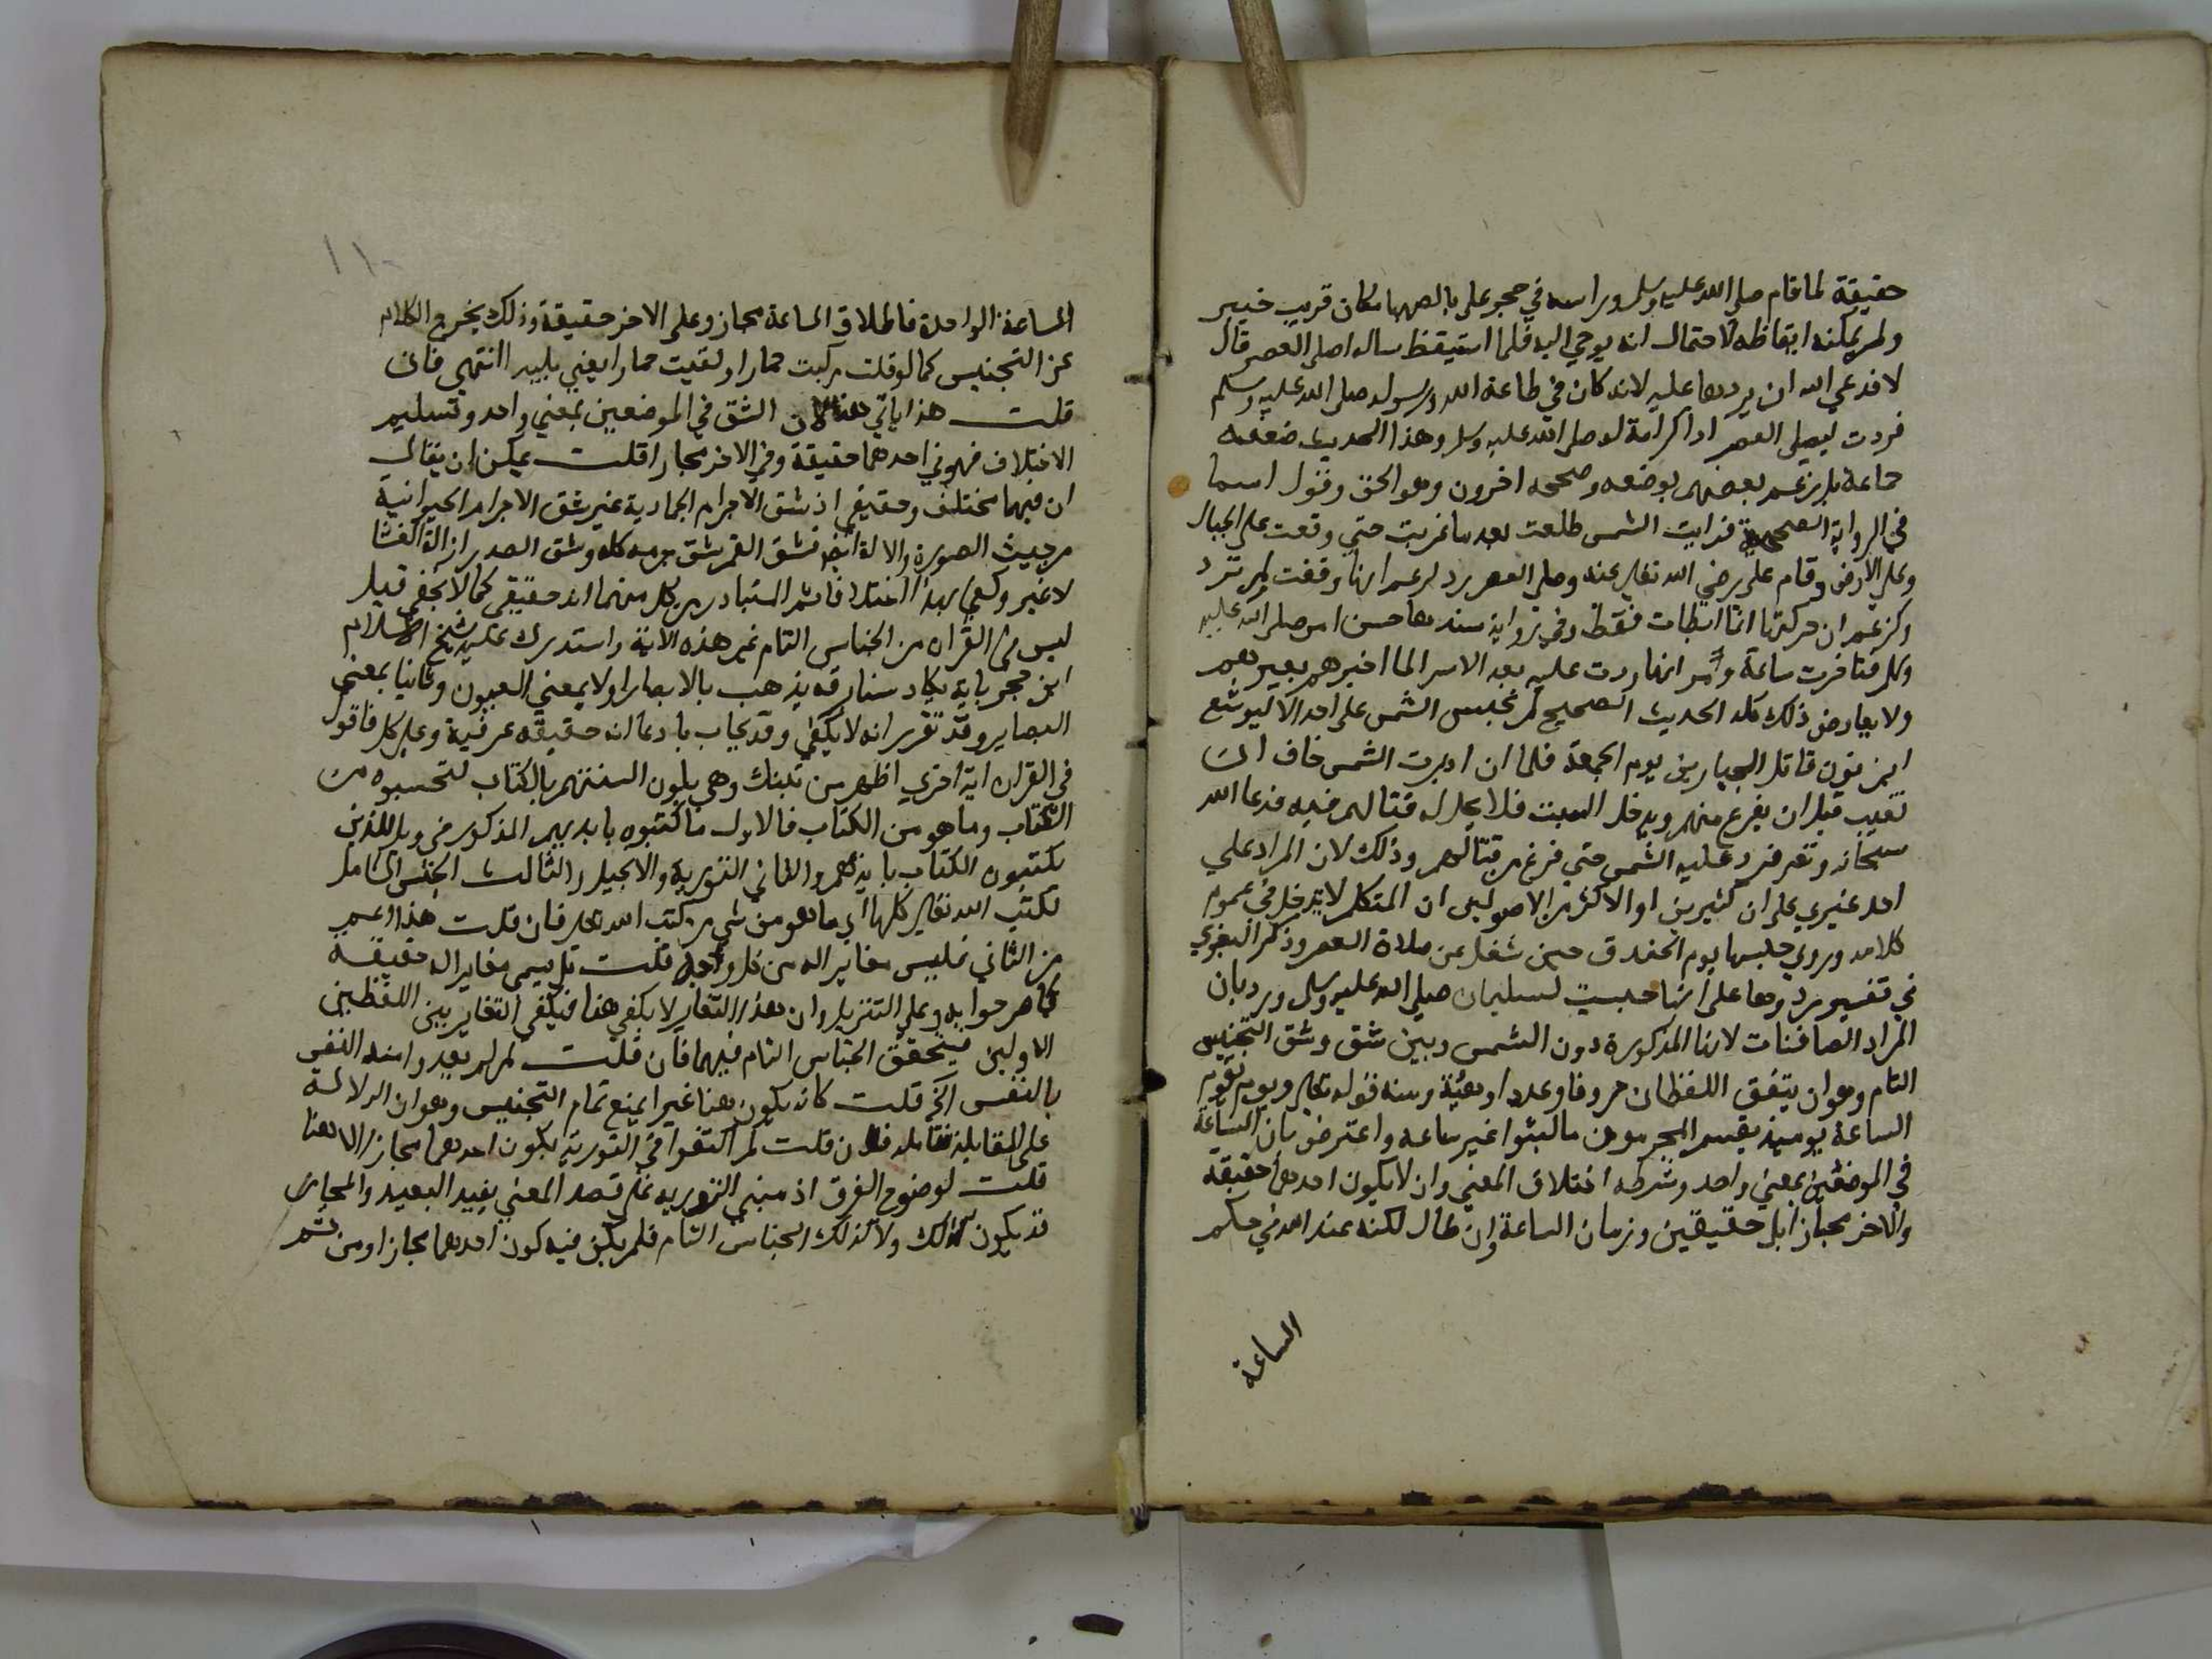 حقيقة لما قام صلى الله عليه وسلم وراسه في حجر علي بالصهبا مكان قريب خيبر
ولم يمكنه ايقاظه لاحتمال انه يوحي اليه فلما استيقظ ساله اصلى العصر قال
لا فدعى الله ان يردها عليه لانه كان في طاعة الله ورسوله صلى الله عليه وسلم
فردت ليصلي العصر اداكرامة له صلى الله عليه وسلم وهذا الحديث ضعفه
جماعة بل زعم بعضهم بوضعه وصححه اخرون وهو الحق وقول اسما
في الرواية الصحيحة فرايت الشمس طلعت بعد ما غربت حتي وقعت على الجبال
وعلى الارض وقام علي رضي الله تعالى عنه وصلى العصر يرد لزعم انها وقفت لم ترد
وكزعم ان حركتها انما ابطات فقط وفي رواية سندها حسن امر صلى الله عليه
وسلم فتاخرت ساعة وامر انها ردت عليه بعد الاسرا لما اخبرهم بعيرهم
ولا يعارض ذلك كله الحديث الصحيح لم تحبس الشمس على احد الا ليوشع
ابن نون قاتل الجبارين يوم الجمعة فلما ان ادبرت الشمس خاف ان
تغيب قبل ان يفرغ منهم ويدخل السبت فلا يحل له قتالهم فيه فدعا الله
سبحانه وتع فرد عليه الشمس حتي فرغ من قتالهم وذلك لان المراد علي
احد غيري على ان كثيرين او الاكثر من الاصوليين ان المتكلم لا يدخل في عموم
كلامه وروي حبسها يوم الخندق حين شغل عن صلاة العصر وذكر البغوي
في تفسيره ردها على انها حبست لسليمان صلى الله عليه وسلم ورد بان
المراد الصافنات لانها المذكورة دون الشمس وبين شق وشق التجنيس
التام وهو ان يتفق اللفظان حروفا وعددا وهيئة ومنه قوله تعالى ويوم تقوم
الساعة يوميذ يقسم المجرمون ما لبثوا غير ساعه واعترض بان الساعة
في الموضعين بمعني واحد وشرطه اختلاف المعني وان لا يكون احدهما حقيقة
والاخر مجازا بل حقيقين وزمان الساعة وان طال لكنه عند الله في حكم
الساعة
١١٠
الساعة الواحدة فاطلاق الساعة مجاز وعلى الاخر حقيقة وذلك يخرج الكلام
عن التجنيس كما لو قلت ركبت حمارا ولقيت حمارا يعني بليدا انتهي فان
قلت هذا ياتي هنا لان الشق في الموضعين بمعني واحد وتسليم
الاختلاف فهو في احدهما حقيقة وفي الاخر مجازا قلت يمكن ان يقال
ان فيهما مختلف وحقيقي اذ شق الاجرام الجمادية غير شق الاجرام الحيوانية
من حيث الصورة والالة ايضا فشق القمر شق جرمه كله وشق الصدر ازالة الغشا
لا غير وكفي بهذا اختلافا ثم المتبادر من كل منهما انه حقيقي كما لا يخفي قيل
ليس في القران من الجناس التام غير هذه الاية واستدرك عليه شيخ الاسلام
ابن حجر باية يكاد سنا برقه يذهب بالابصار اولا بمعني العيون وثانيا بمعني
البصاير وقد تقرر انه لا يكفي وقد يجاب بادعا انه حقيقة عرفية وعلى كل فاقول
في القران اية اخري اظهر من تلك وهي يلون السنتهم بالكتاب لتحسبوه من
الكتاب وما هو من الكتاب فالاول ما كتبوه بايديهم المذكور في ويل للذين
يكتبون الكتاب بايديهم والثاني التورية والانجيل والثالث الجنس الشامل
لكتب الله تعالى كلها اي ما هو من شي من كتب الله تعالى فان قلت هذا اعم
من الثاني فليس مغايرا له من كل وجه قلت بل يسمي مغايرا له حقيقة
كما صرحوا به وعلى التنزيل وان هذا التغاير لا يكفي هنا فيكفي التغاير بين اللفظين
الاولين فيتحقق الجناس التام فيهما فان قلت لم لم يعد وامنه النفس
بالنفس الخ قلت كانه يكون هنا غيرا يمنع تمام التجنيس وهو ان الدلالة
على المقابلة فتامله فان قلت لم اكتفوا في التورية بكون احدهما مجازا لا هنا
قلت لوضوح الفرق اذ مبني التورية على قصد المعني بقيد البعيد والمجازي
قد يكون كذلك ولا كذلك الجناس التام فلم يكف فيه كون احدهما مجازا ومن ثم